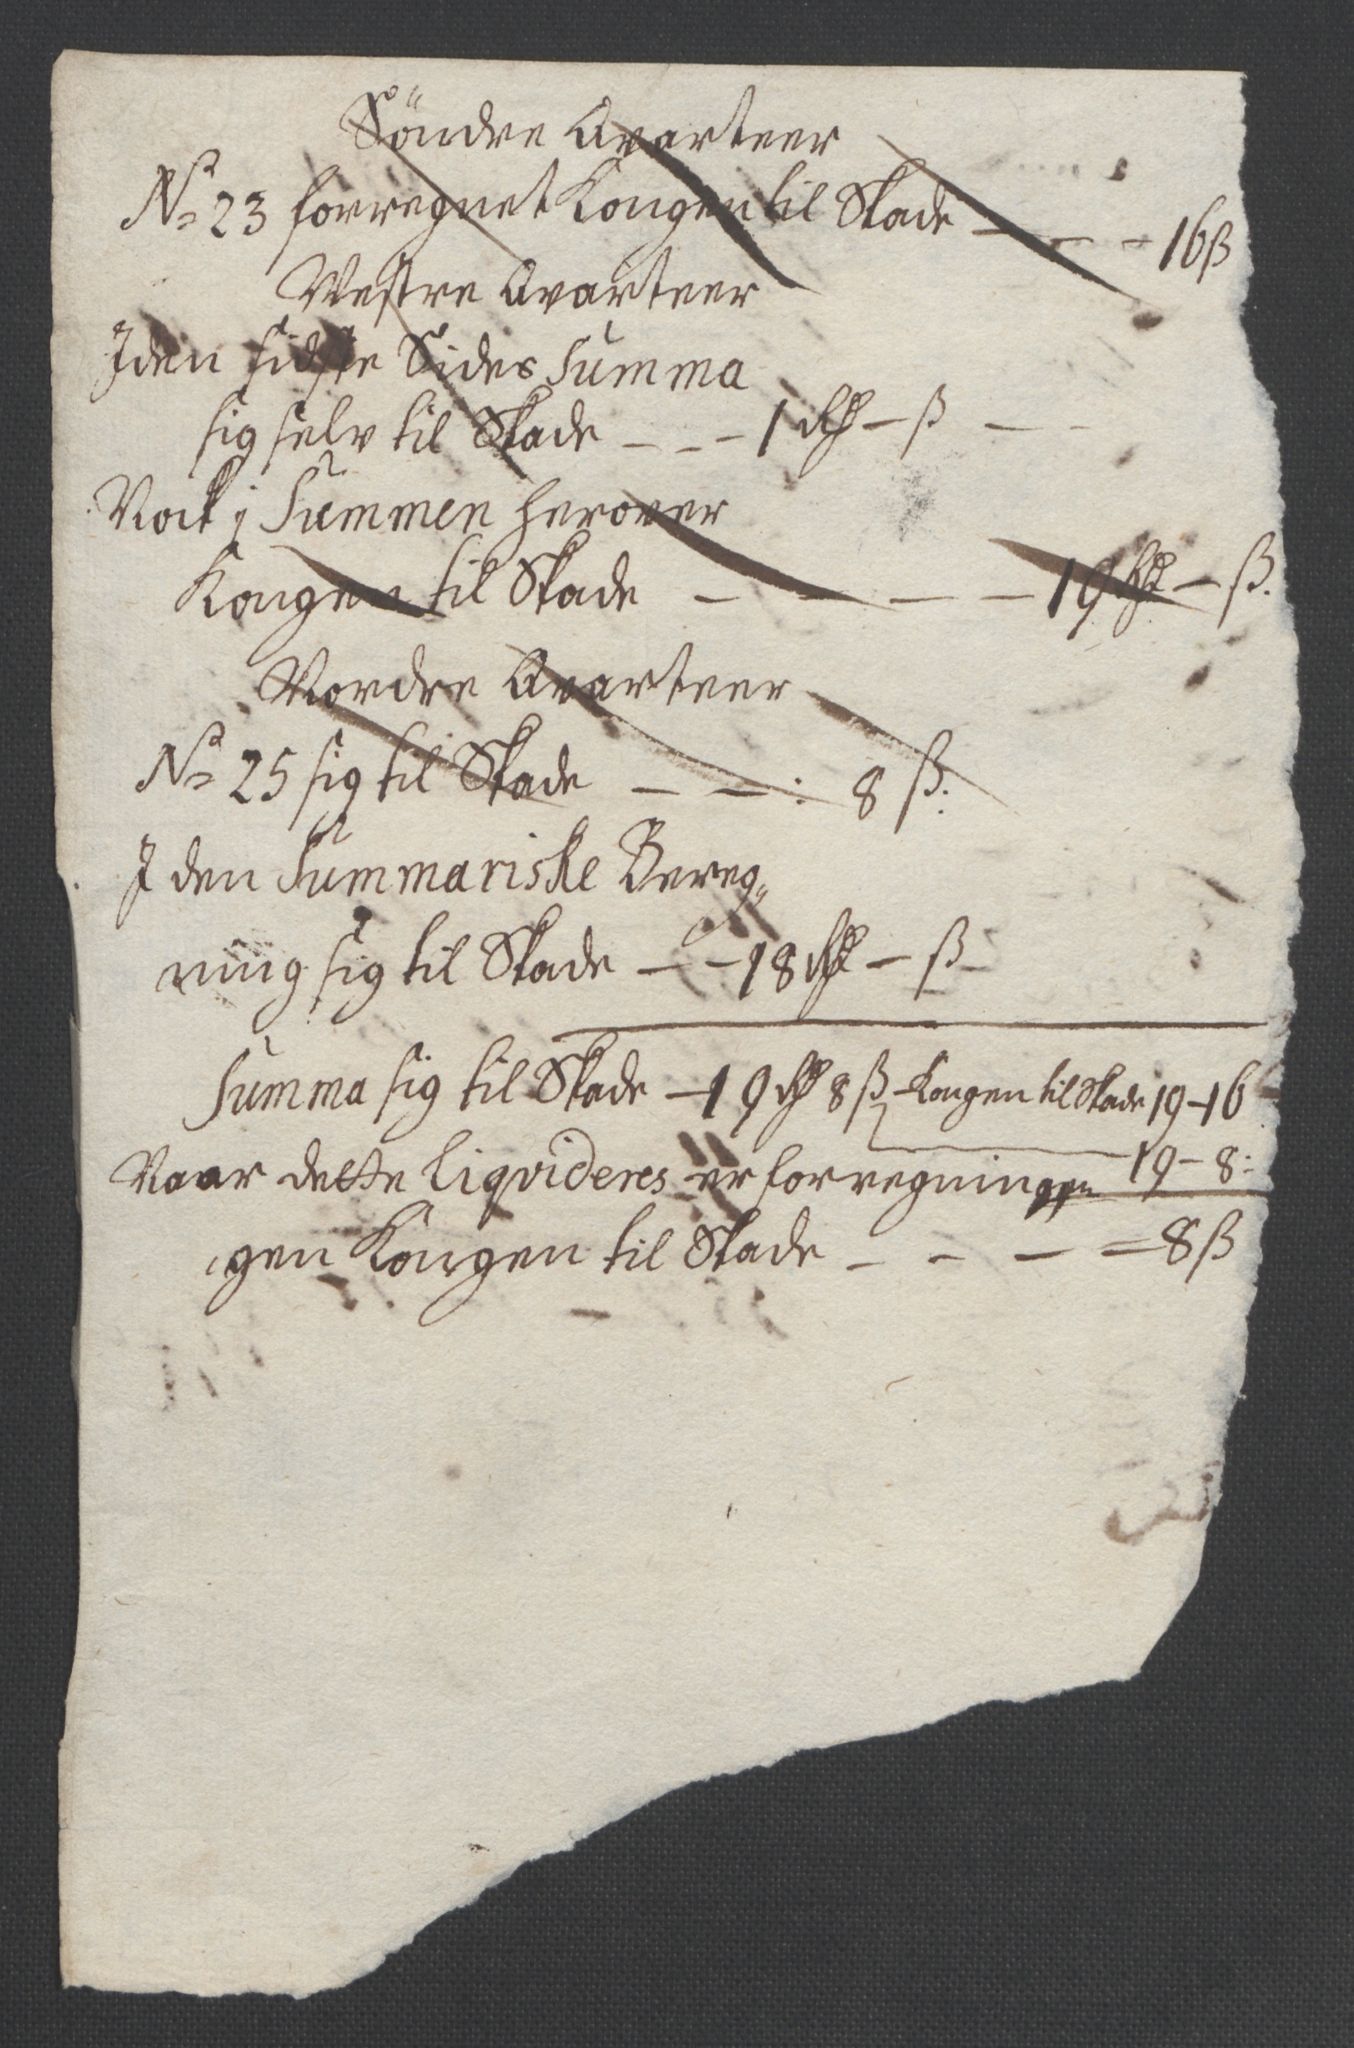 Söndre Qvarteer
No 23 forregnet Kongen til Skade — — — 16 ß
Westre Qvarteer
I den sidste Sides Summa
sig selv til Skade — — — 1 rd — ß — —
Nock i Summen herover
Kongen til Skade — — — — 19 rd — ß.
Nordre Qvarteer
No 25 sig til Skade — — : 8 ß:
I den Summariske Bereg„
ning sig til Skade — — 18 rd — ß —
Summa sig til Skade — 19 rd 8 ß Kongen til Skade 19 - 16
19 - 8:
Naar dette liqvideres er forregningen
gen Kongen til Skade — — — = 8 ß